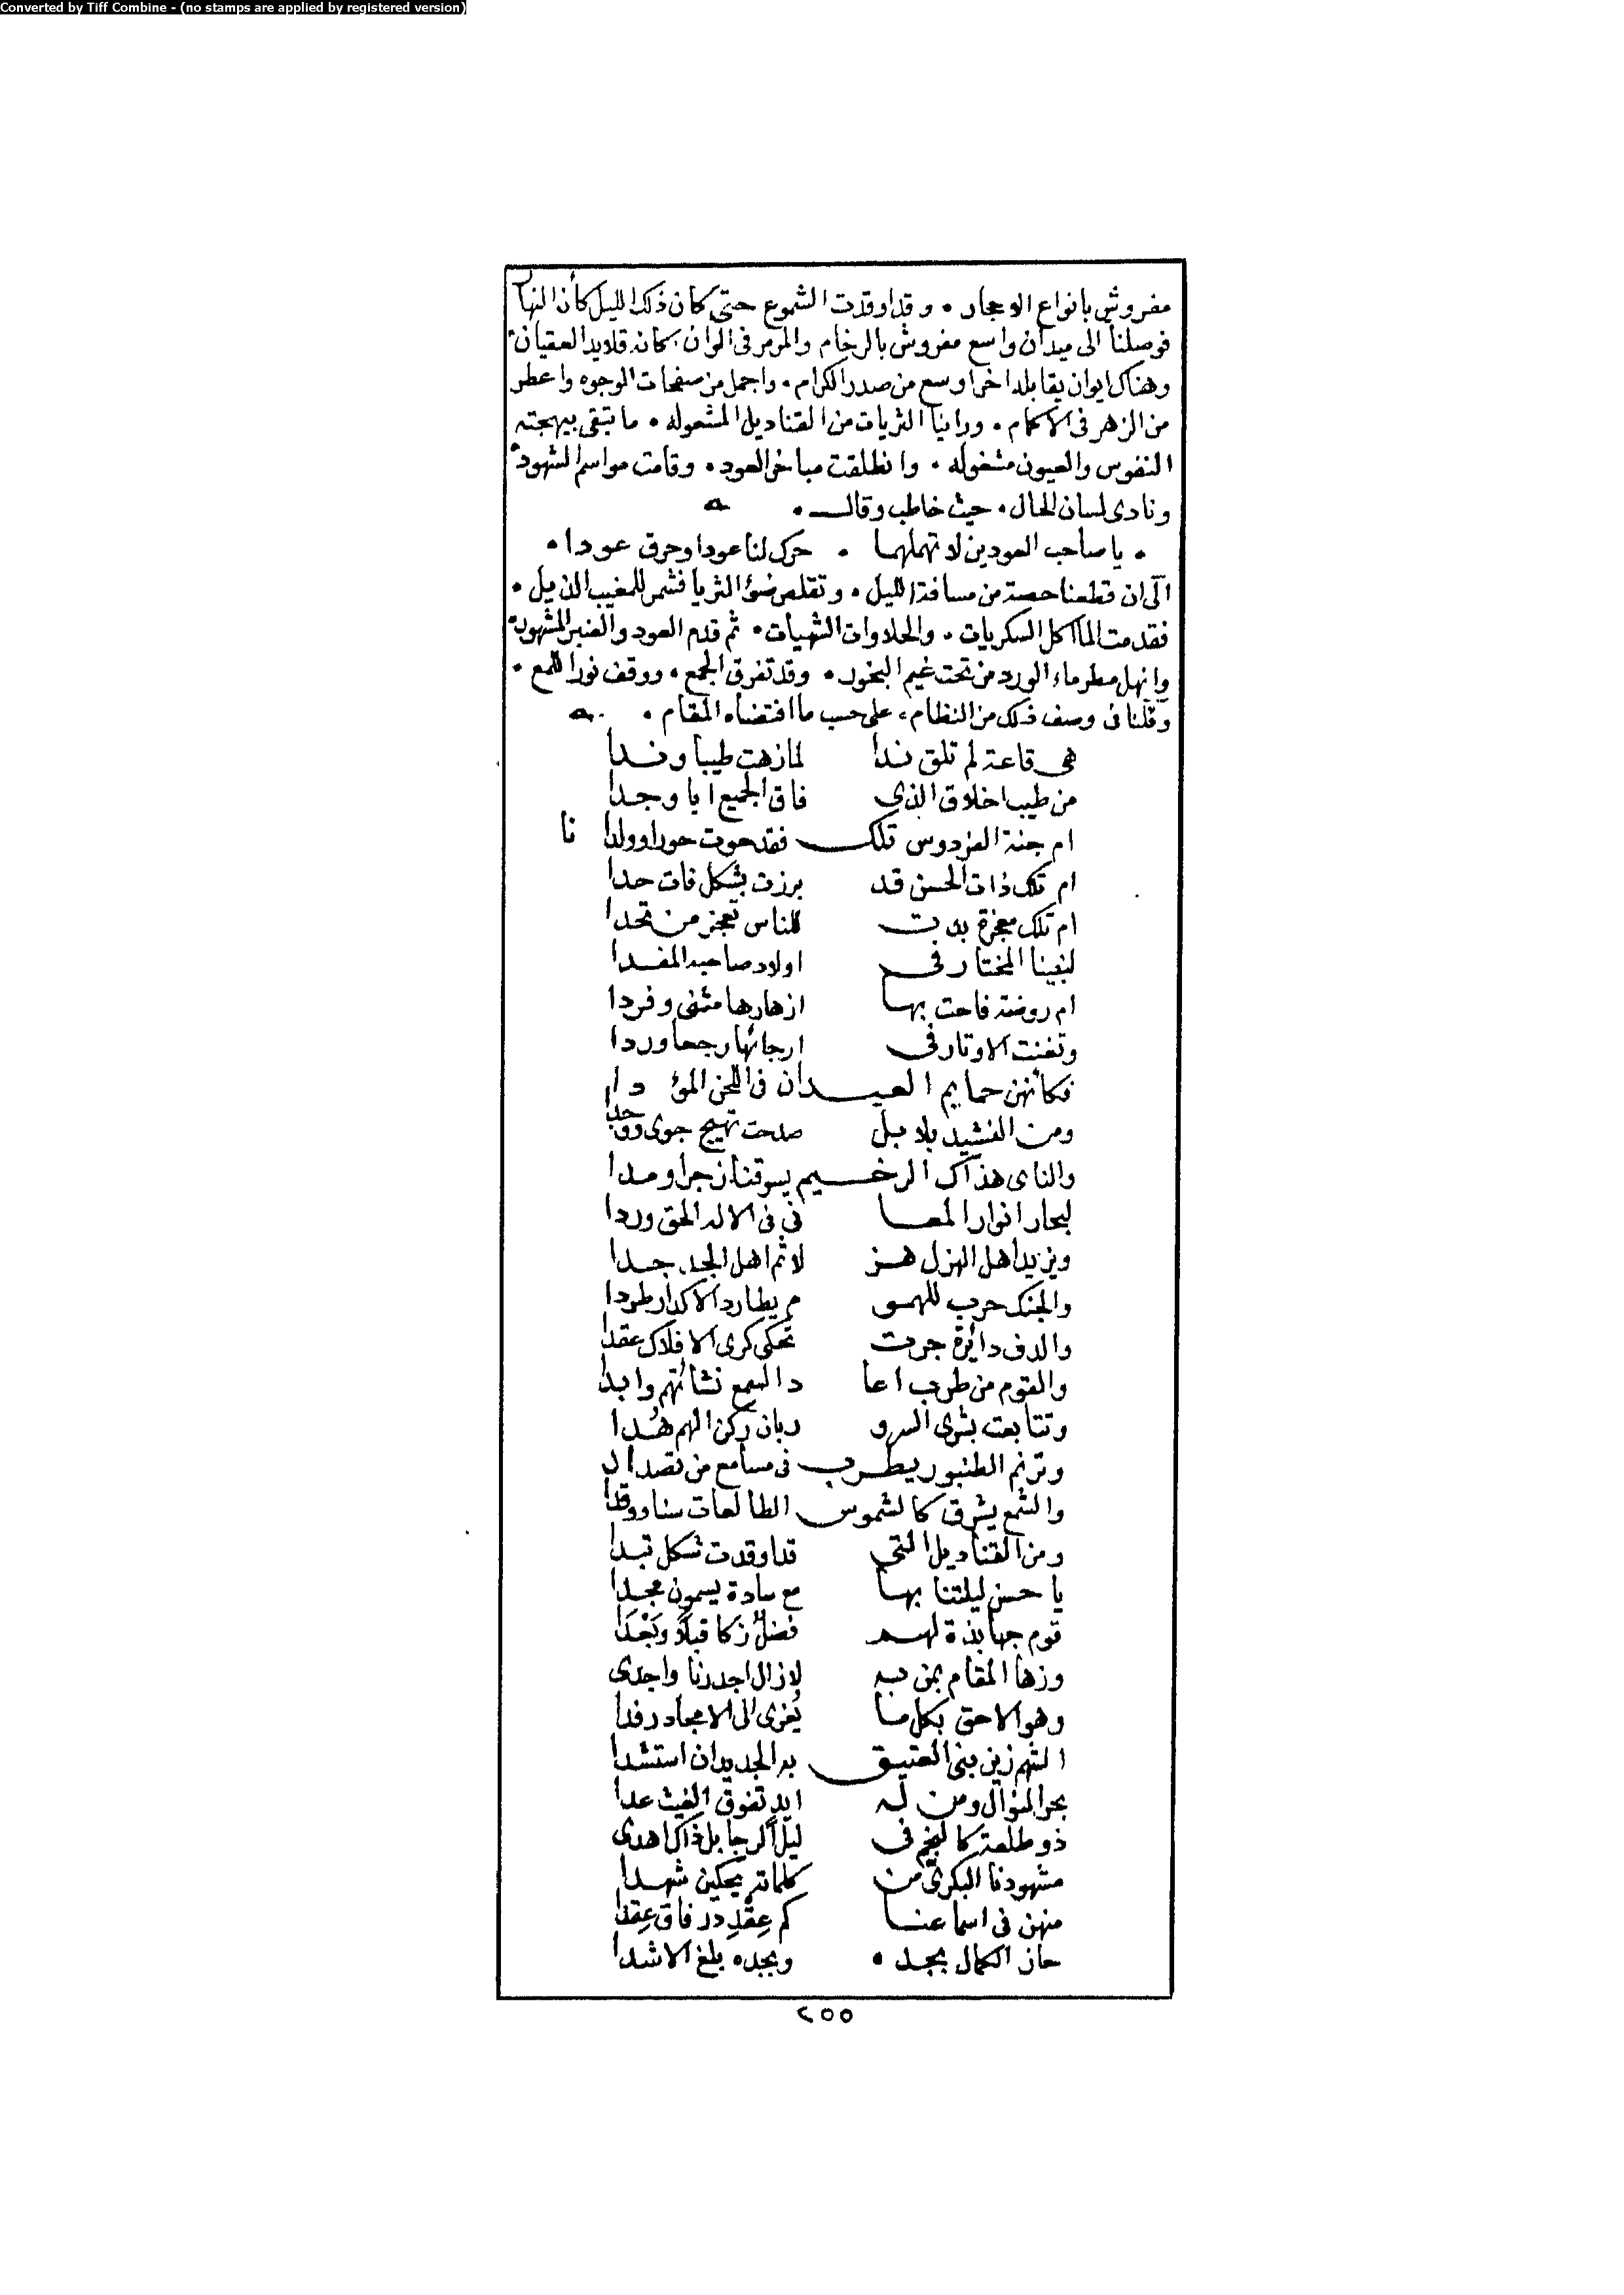 Converted by Tiff Combine - (no stamps are applied by registered version)
مفروش بانواع الاحجار • وقد اوقدت الشموع حتى كان ذلك الليل كأنه النهار
فوصلنا الى ميدان واسع مفروش بالرخام والمرمر فى الوان • كانه قلايد العقيان •
وهناك ايوان يقابله اخر اوسع من صدر الكرام • واجمل من صفحات الوجوه واعطر
من الزهر فى الاكمام • وراينا الثريات من القناديل المشعوله • ما تبقى ببهجته
النفوس والعيون مشغوله • وانطلقت مباخر العود • وقامت مواسم الشهود •
ونادى لسان الحال • حيث خاطب وقال •
• يا صاحب العودين لا تهملهما • حرك لنا عودا وحرق عودا •
الى ان قطعنا حصة من مسافة الليل • وتقلص ضوء الثريا فشمر للمغيب الذيل •
فقدمت الماكل السكريات • والحلاوات الشهيات • ثم قدم العود والعنبر المشهود •
وانهل مطر ماء الورد من تحت غيم البخور • وقد تفرق الجمع • ووقف نور اللمع •
وقلنا فى وصف ذلك من النظام • على حسب ما اقتضاه المقام •
هى قاعة لم تلق ندا لما زهت طيبا وندا
من طيب اخلاق الذى فاق الجميع ابا وجدا
ام جنة الفردوس تلك فقد حوت حورا وولدا نا
ام تلك ذات الحسن قد برزت بشكل فات حدا
ام تلك معجزة بدت للناس تعجز من تحدا
لنبينا المختار فى اولاد صاحبه المفدا
ام روضة فاحت بها ازهارها مثنى وفردا
وتغنت الاوتار فى ارجائها رجعا وردا
فكأنهن حمايم العيدان فى اللحن المؤدا
ومن النشيد بلابل صدحت تهيج جوى ووجدا
والناى هذاك الرخيم يسوقنا زجرا ومدا
لبحار انوار المعا نى فى الاله الحق وردا
ويزيد اهل الهزل هز لا ثم اهل الجد جدا
والجنك حرب للهمو م يطارد الاكدار طردا
والدف دائرة جرت تحكى كرى الافلاك عقدا
والقوم من طرب اعا د السمع نشأتهم وابدا
وتتابعت بشرى السرو ر بان ركن الهم هُدا
وترنم الطنبور يطرب فى مسامع من تصدا
والشمع يشرق كالشموس الطالعات سنا ووقدا
ومن القناديل التى قد اوقدت شكل تبدا
يا حسن ليلتنا بها مع سادة يسمون مجدا
قوم جهابذة لهم فضل زكا قبلا وبَعْدَا
وزها المقام بمن به لا زال اجدرنا واجدى
وهو الاحق بكل ما يُعزى الى الامجاد رفدا
الشهم زين بنى العتيق به الجديدان استشدا
بحر النوال ومن له ايدٍ تفوق الغيث عدا
ذو طلعة كالنجم فى ليل الرجا بل ذاك اهدى
مشهودنا البكرى من كلماته يحكين شهدا
منهن فى اسماعنا كم عِقْدِ در فاق عِقدا
حاز الكمال بجده • وبجده بلغ الاشدا
٢٥٥